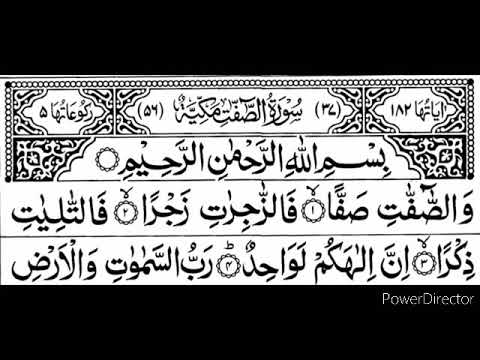 اٰيَاتُهَا ١٨٢ (٣٧) سُوْرَةُ الصّٰٓفّٰتِ مَكِّيَّةٌ (٥٦) رُكُوْعَاتُهَا ٥
بِسْمِ اللّٰهِ الرَّحْمٰنِ الرَّحِيْمِ
وَالصّٰٓفّٰتِ صَفًّا ۙ﴿١﴾ فَالزّٰجِرٰتِ زَجْرًا ۙ﴿٢﴾ فَالتّٰلِيٰتِ
ذِكْرًا ۙ﴿٣﴾ اِنَّ اِلٰهَكُمْ لَوَاحِدٌ ؕ﴿٤﴾ رَبُّ السَّمٰوٰتِ وَالْاَرْضِ
PowerDirector